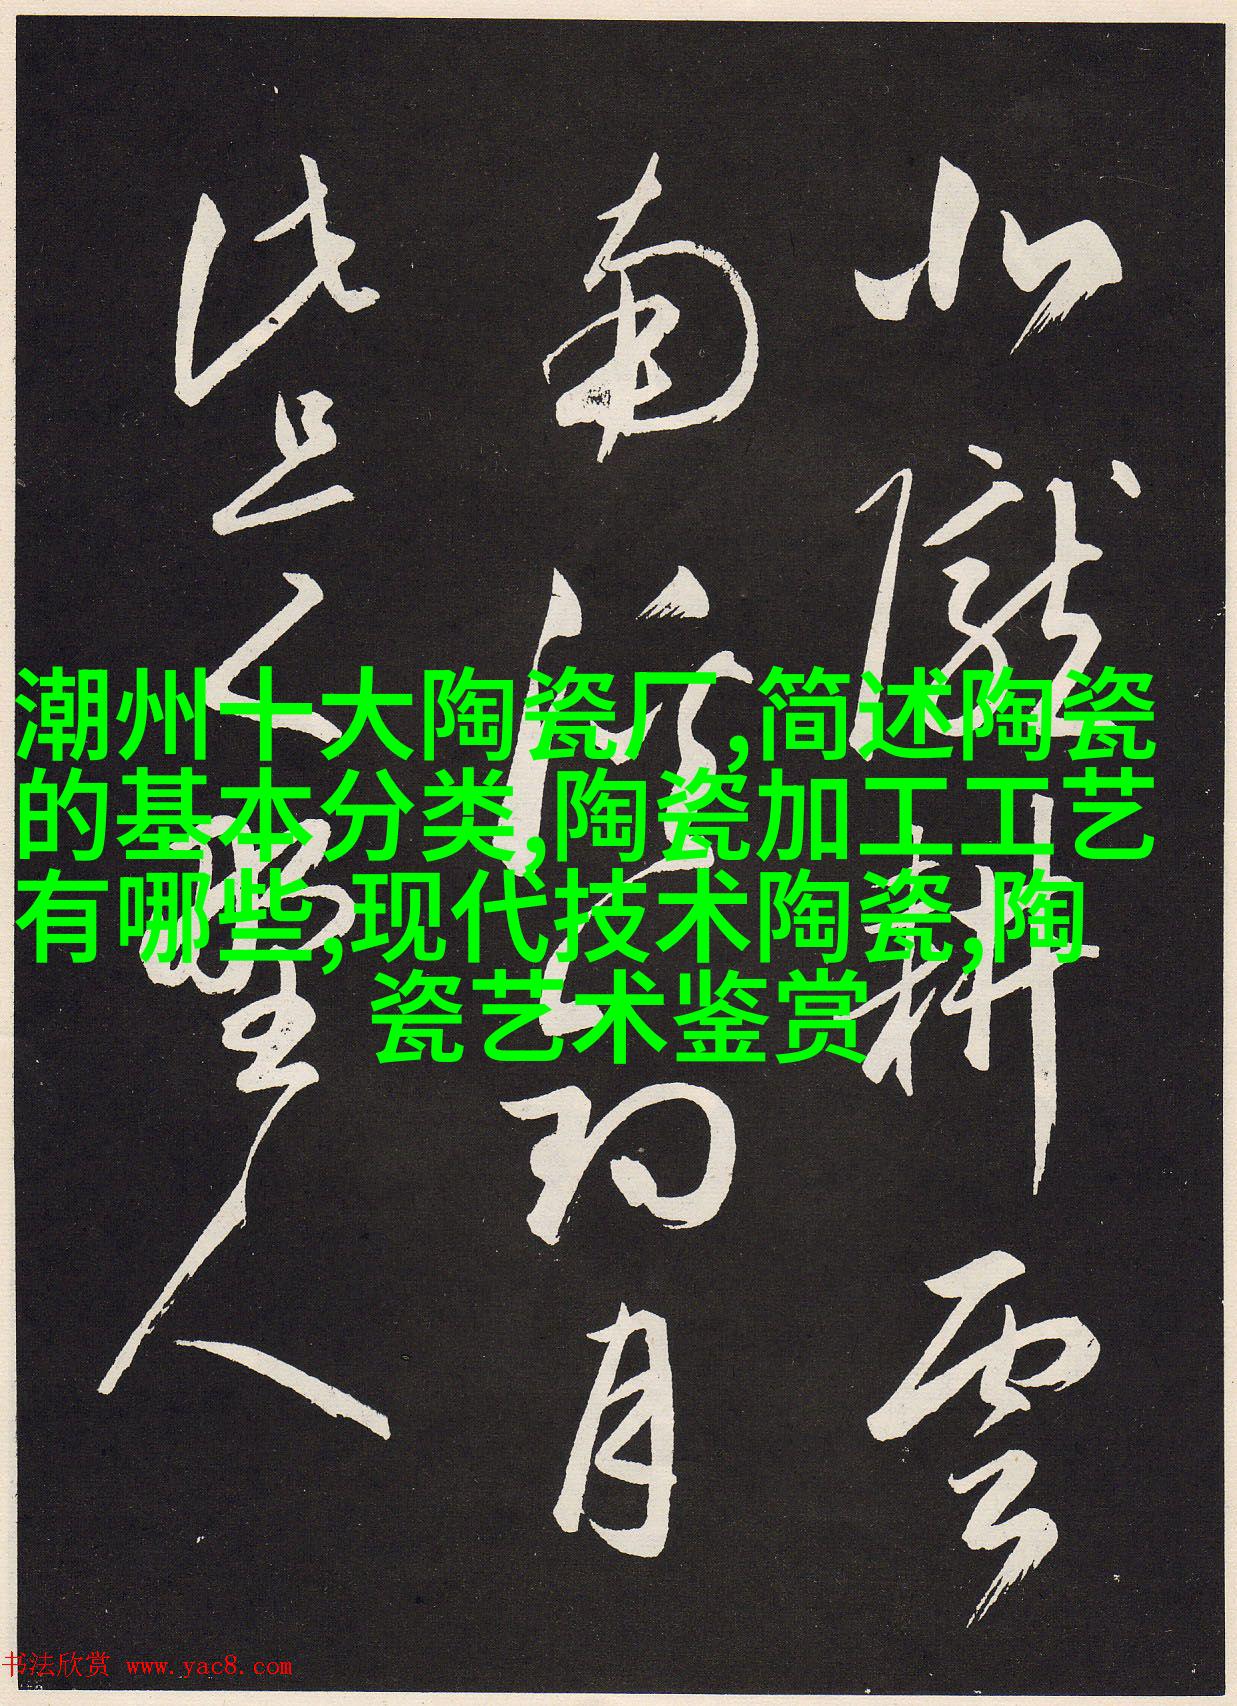 北隴耕雲
南溪釣月
此是野人
潮州十大陶瓷厂,简述陶瓷
的基本分类,陶瓷加工工艺
有哪些,现代技术陶瓷,陶
瓷艺术鉴赏
书法欣赏 www.yac8.com